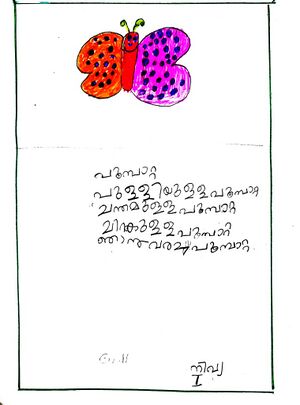 പൂമ്പാറ്റ
പുള്ളിയുള്ള പൂമ്പാറ്റ
ചന്തമുള്ള പൂമ്പാറ്റ
ചിറകുള്ള പൂമ്പാറ്റ
ഞാൻ വരച്ച പൂമ്പാറ്റ
നിവ്യ
I